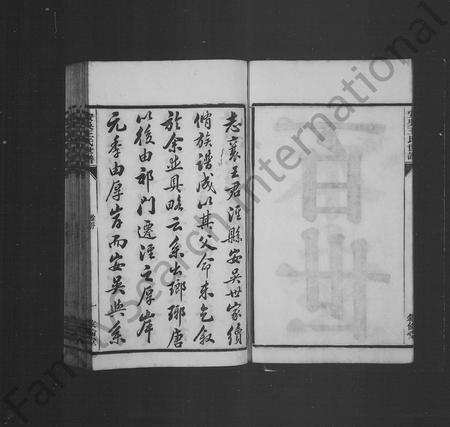 百世
志襄王君涇縣安吳世家續
脩族譜成以其父命來乞敘
於余並具略云系出瑯琊唐
以後由祁門遷涇之厚岸
元季由厚岸而安吳與系
FamilySearch International